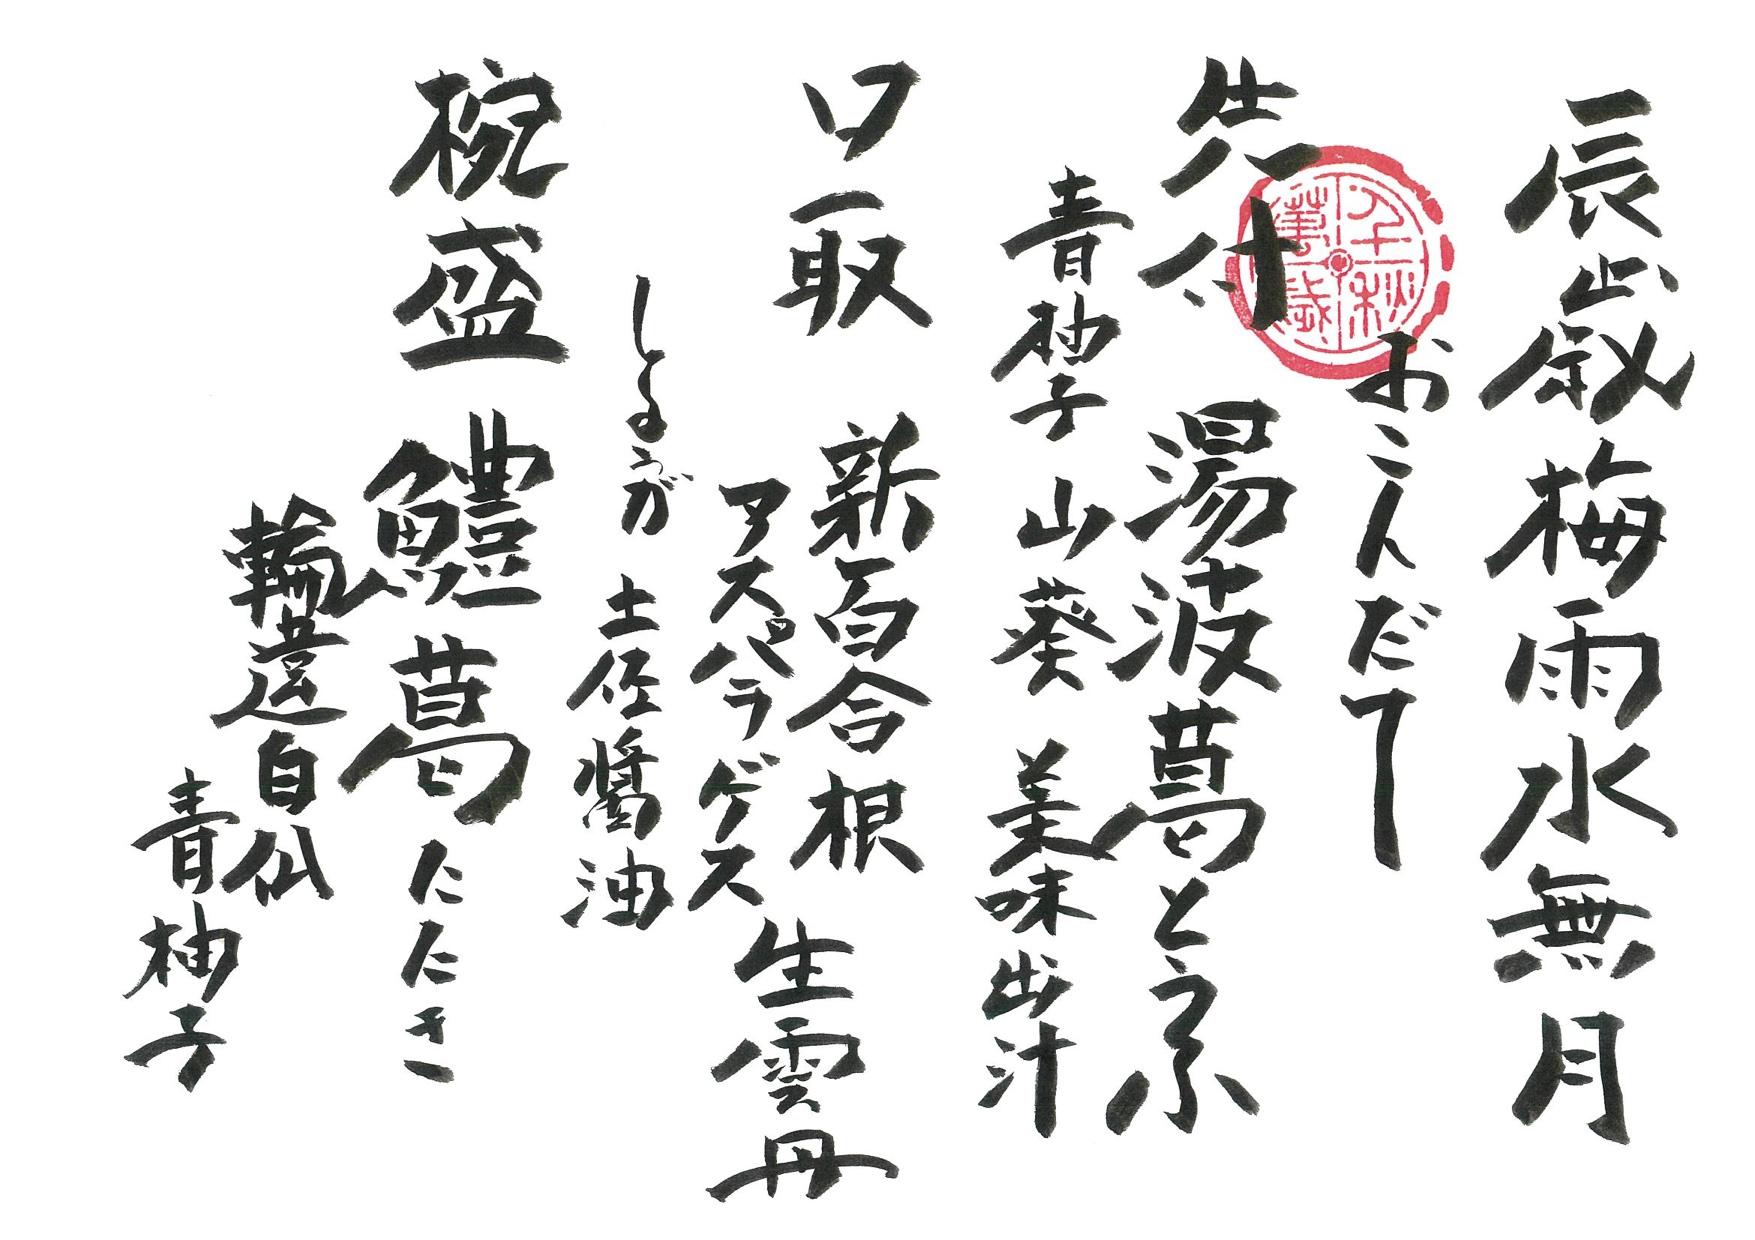 辰歳梅雨水無月
千秋萬歳
おこんだて
先付 湯波葛とうふ
青柚子 山葵 美味出汁
口取 新百合根 生雲丹
アスパラゲス
土佐醬油
椀盛 鱧葛たたき
輪違白瓜
青柚子